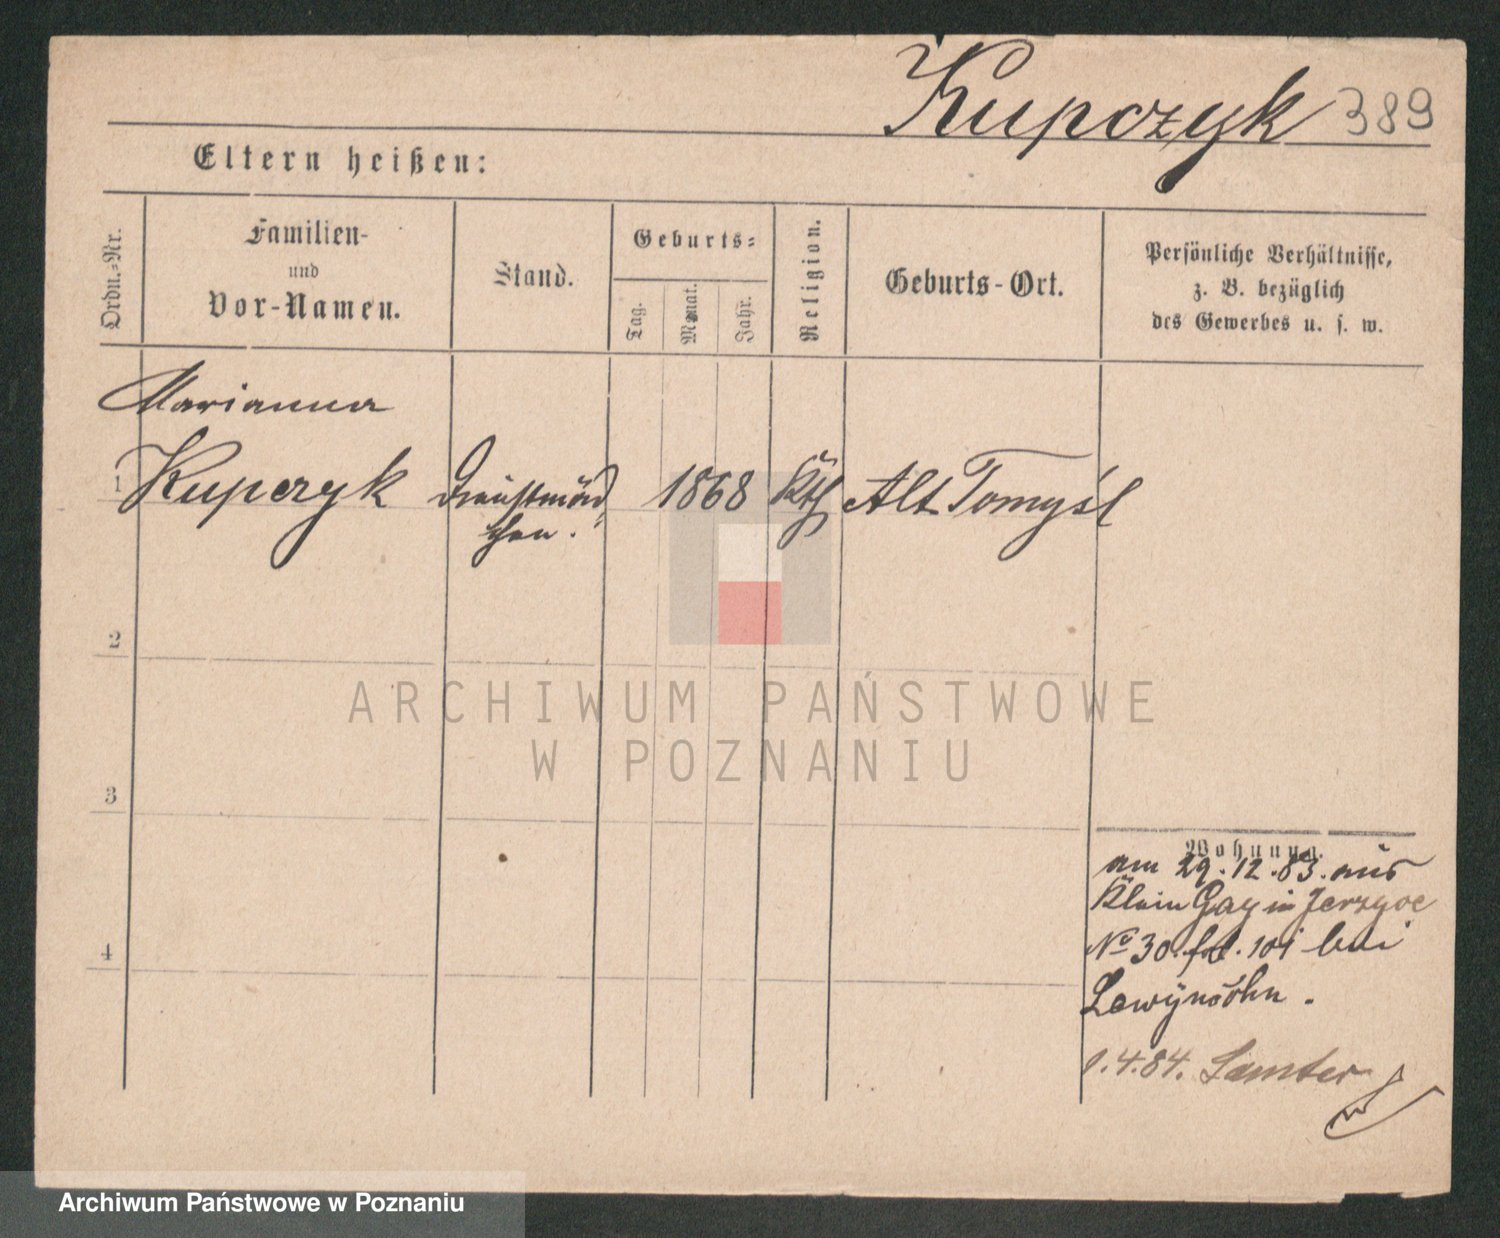 Kupczyk 389
Eltern heißen:
Ordn.=Nr.
Familien-
und
Vor-Namen.
Stand.
Geburts=
Tag.
Monat.
Jahr.
Religion.
Geburts-Ort.
Persönliche Verhältnisse,
z. B. bezüglich
des Gewerbes u. s. w.
Marianna
1 Kupczyk Dienstmäd 1868 Kth Alt Tomyśl
chen.
2
ARCHIWUM PAŃSTWOWE
W POZNANIU
3
Wohnung.
am 29.12.83. aus
Klein Gay in Jerzyce
No 30. fol. 101 bei
Lewynsohn.
4
1.4.84. Samter
Archiwum Państwowe w Poznaniu